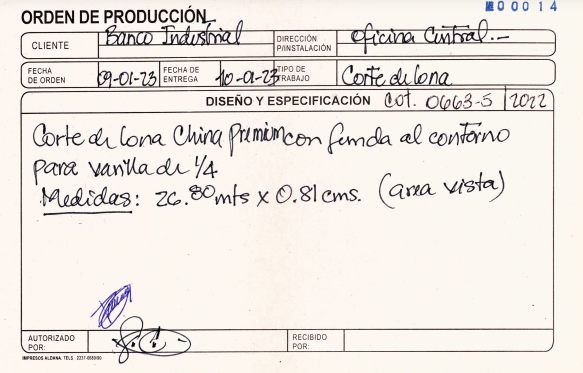 ORDEN DE PRODUCCIÓN
00014
CLIENTE Banco Industrial DIRECCIÓN P/INSTALACIÓN Oficina Central.-
FECHA DE ORDEN 09-01-23 FECHA DE ENTREGA 10-01-23 TIPO DE TRABAJO Corte de lona
DISEÑO Y ESPECIFICACIÓN Cot. 0663-5 2022
Corte de lona China premium con funda al contorno
para varilla de 1/4
Medidas: 26.80 mts x 0.81 cms. (area vista)
AUTORIZADO POR: RECIBIDO POR:
IMPRESOS ALDANA. TELS.